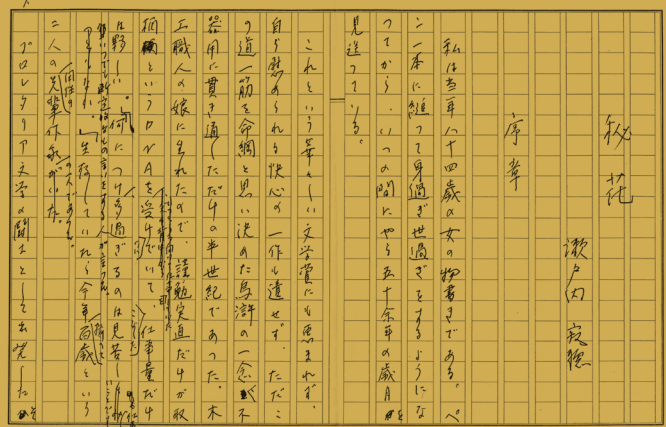 秘花
瀬戸内寂聴
序章
私は当年八十四歳の女の物書きである。ペ
ン一本に縋って身過ぎ世過ぎをするようにな
ってから、いつの間にやら五十余年の歳月を
見送っている。
これという華々しい文学賞にも恵まれず、
自ら慰められる快心の一作も遺せず、ただこ
の道一筋を命綱と思い決めた烏滸の一念で不
器用に貫き通しただけの半世紀であった。木
工職人の娘に生れたので、謹勉実直だけが取
柄というDNAを受けていて、仕事量だけ
は夥しい。「何につけ多過ぎるのは見苦しい
いつでも断定的なもの言いをする人が言った。
生存していたら今年百歳という
二人の先輩作家がいた。
同性の
プロレタリア文学の闘士として出発した